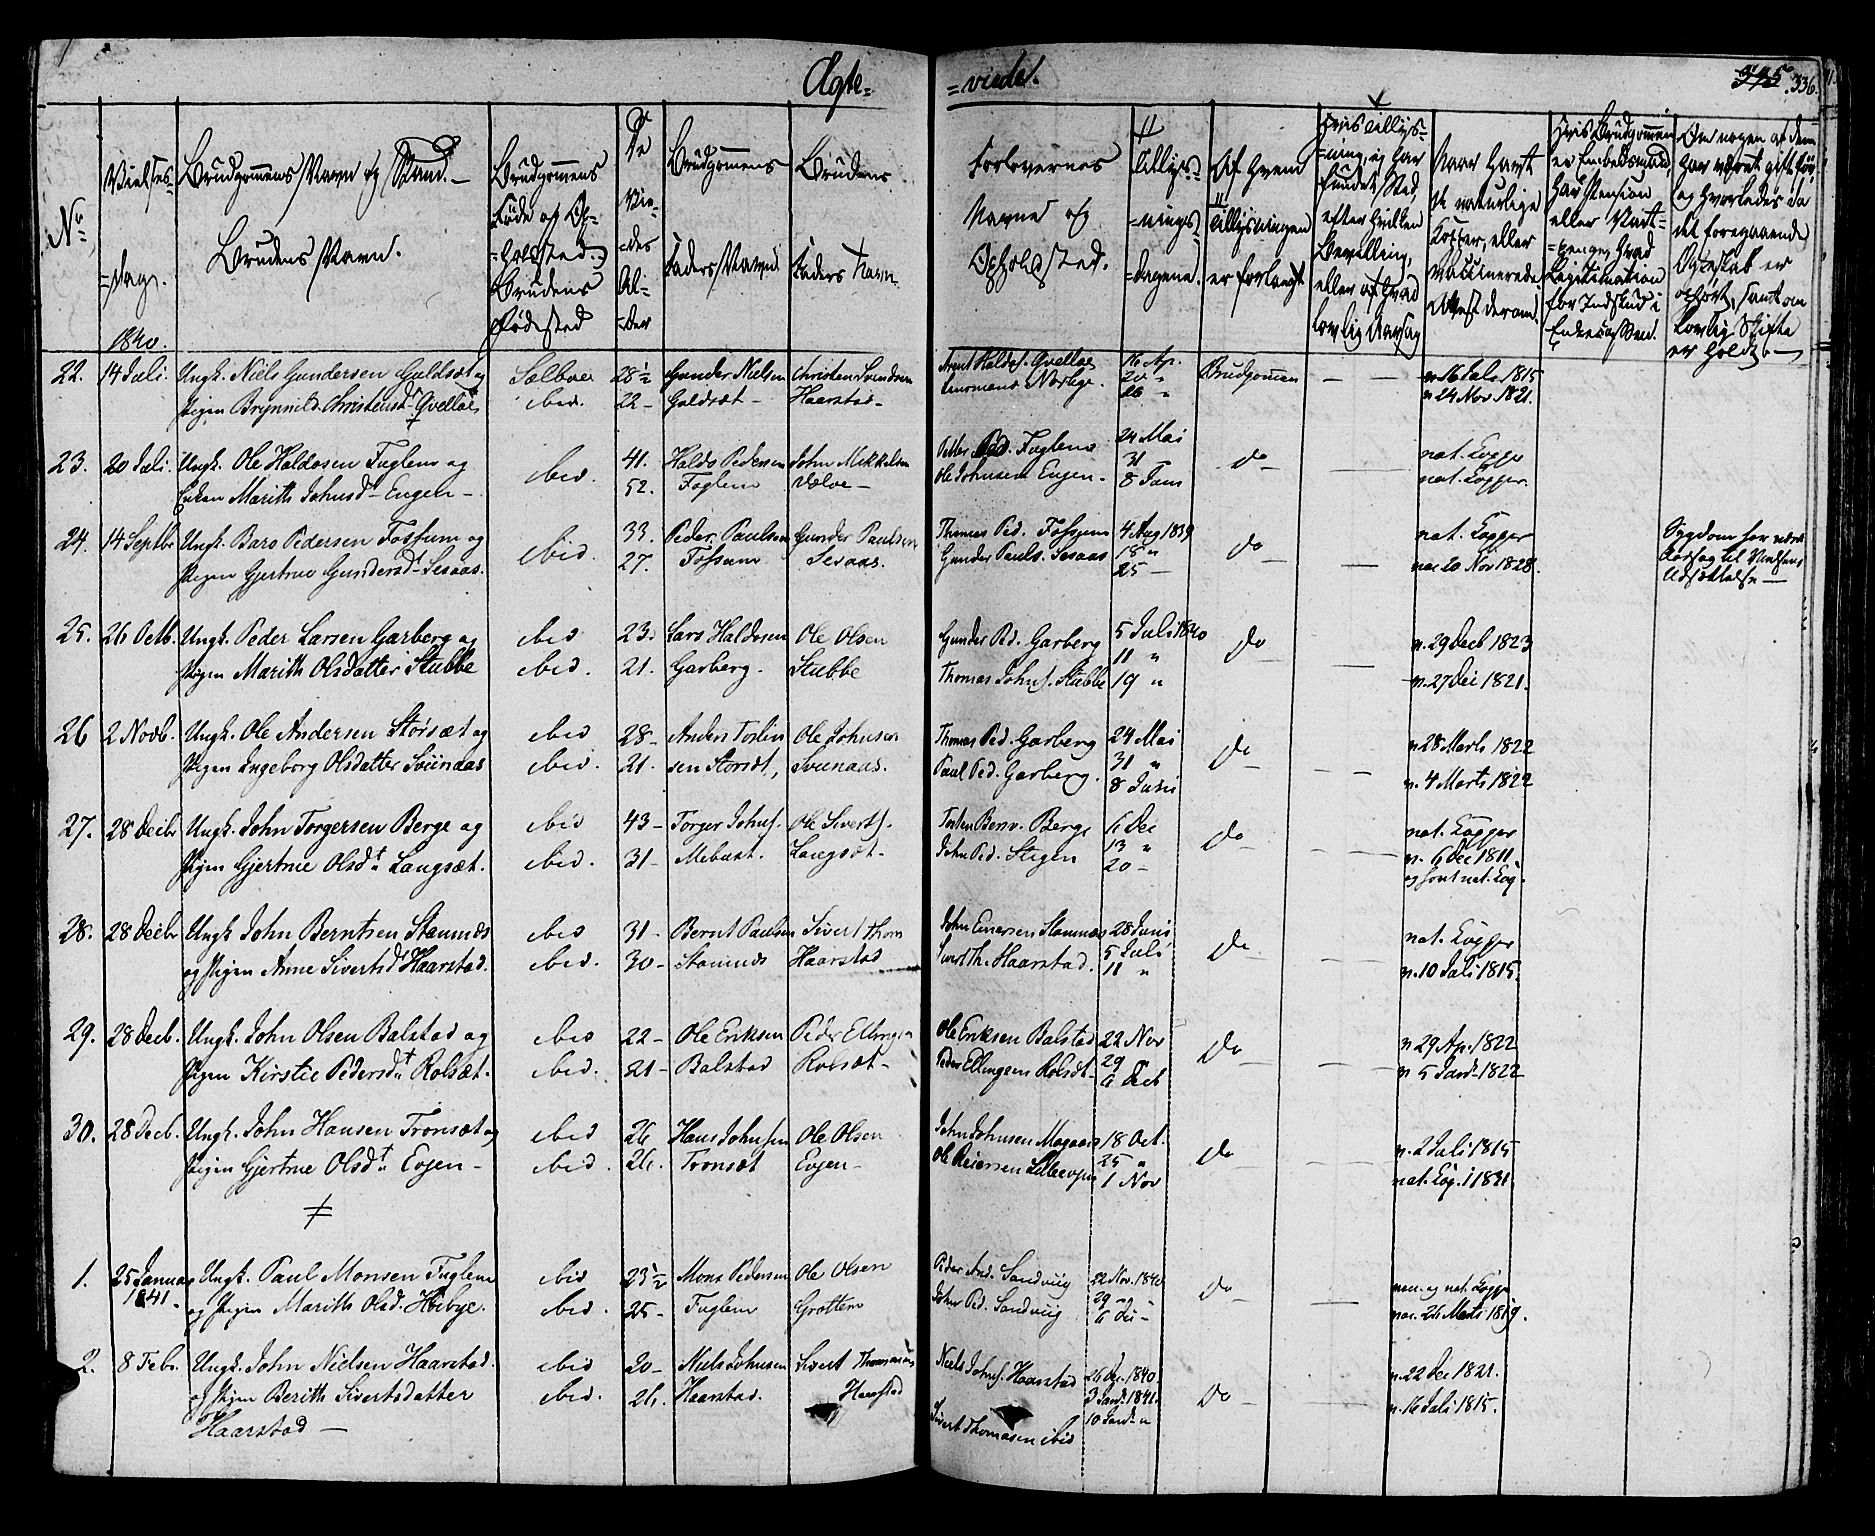 Ægte= =viede.
345. 336.
No
Vielses=
=dag.
1840.
Brudgommens Navn og Stand. —
Brudens Navn.
Brudgommens
Føde og Op=
=holdsted.
Brudens
Fødested
De
Vie=
=des
Al=
=der
Brudgommens
Faders Navn
Brudens
Faders Navn.
Forlovernes
Navne og
Opholdsted.
Tillys=
=nings=
=dagene.
Af hvem
Tillysningen
er forlangt
Hvis Tillys=
=ning, ej har
fundet Sted,
efter hvilken
Bevilling,
eller af hvad
lovlig Aarsag
Naar havt
de naturlige
Kopper, eller
vaccinerede
Attest derom.
Hvis Brudgommen
er Embedsmand,
har Pension
eller Vart=
=penge, hvad
Legitimation
for Indskud i
Enkecassen.
Om nogen af dem
har været gift før,
og hvorledes da
det foregaaende
Ægteskab er
ophørt, samt om
lovlig Skifte
er holdt. —
22. 14 Juli. Ungk. Niels Gundersen Guldsæt og Sælboe 28½ Gunder Nielsen Christen Svendsen Arnt Haldos. Qvelloe 16 Ap. Brudgommen — — v. 16 Juli 1815
Pigen Brynnild Christensd. Qvelloe ibid. 22 — Guldsæt — Haarstad — Lensmand Norbye. 20 „ v. 24 Nov. 1821.
26 „
23. 20 Juli. Ungk. Ole Haldosen Fuglem og ibid. 41. Haldo Pedersen John Mikkelsen Petter Ped. Fuglem 24 Mai do — nat. Kopper
Enken Marith Johnsd. Engen — 52. Fuglem Vælve — Ole Johnsen Engen. 31 „ nat. Kopper.
8 Juni
24. 14 Septbr. Ungk. Baro Pedersen Fossum og ibid. 33. Peder Paulsen Gunder Paulsen Thomas Ped. Fossum 4 Aug 1839 do — nat. Kopper Sygdom har været
Pigen Gjertrue Gundersd. Sesaas. 27. Fossum Sesaas. Gunder Pauls. Sesaas 18 „ vac. 20 Nov 1828. Aarsag til Vielsens
25 — Udsættelse —
25. 26 Octb. Ungk. Peder Larsen Garberg og ibid 23. Lars Haldosen Ole Olsen Gunder Pd. Garberg 5 Juli 1840 do — v. 29 Decb 1823
Pigen Marith Olsdatter Stubbe ibid. 21. Garberg. Stubbe Thomas Johns. Stubbe 11 „ v. 27 Dec 1821.
19 „
26 2 Novb. Ungk. Ole Andersen Storsæt og ibid 28 — Anders Tosten Ole Johnsen Thomas Ped. Garberg 24 Mai do — v. 28 Marts 1822
Pigen Ingeborg Olsdatter Sviinaas ibid. 21. sen Storsæt, Sviinaas. Paul Ped. Garberg. 31 „ v. 4 Marts 1822
8 Juni
27. 28 Decbr Ungk. John Torgersen Berge og ibid 43 — Torger Johns. Ole Siverts. Tosten Benv. Berge 6 Dec do — nat. Kopper
Pigen Gjertrue Olsdt. Langsæt. ibid. 31 — Mebust. Langsæt. John Ped. Stigen 13 „ v. 6 Dec 1811.
20 —
28. 28 Decbr Ungk. John Berntsen Stamnes ibid 31 — Bernt Paulsen Sivert Thom John Einersen Stamnæs 28 Juni do — nat. Kopper
og Pigen Anne Sivertsd. Haarstad. ibid. 30 — Stamnes Haarstad Sivert Th. Haarstad. 5 Juli v. 10 Juli 1815.
11 „
29. 28 Decb. Ungk. John Olsen Balstad og ibid 22 — Ole Eriksen Peder Ellingsen Ole Eriksen Balstad 22 Nov do — v. 29 Ap. 1822
Pigen Kirstie Pedersdt. Rolsæt. ibid. 21 — Balstad Rolsæt — Peder Ellingsen Rolsæt 29 v. 5 Jan. 1822
6 Decb
30. 28 Decb. Ungk. John Hansen Tronsæt og ibid 26 Hans Johnsen Ole Olsen John Johnsen Mogaard 18 Oct. do — v. 2 Juli 1815
Pigen Gjertrue Olsdt. Evjen — ibid. 26. Tronsæt Evjen — Ole Reiersen Lilleevjen 25 „ nat. Kop. i 1831.
1 Nov
1. 25 Januar Ungk. Paul Monsen Fuglem ibid 23½ Mons Pedersen Ole Olsen Peder And. Sandviig 22 Nov. 1840 do — nat. Kopper
1841. og Pigen Marith Olsd. Høibye. ibid. 25 — Fuglem Grøttem John Ped. Sandviig 29 „ „ vac. 24 Marts 1819.
6 Dec —
2. 8 Febr. Ungk. John Nielsen Haarstad. ibid 20 — Niels Johnsen Sivert Thomassen Niels Johns. Haarstad 26 Dec. 1840. do — v. 22 Dec 1821.
og Pigen Berith Sivertsdatter ibid. 26. Haarstad. Haarstad 3 Jan. 1841. v. 16 Juli 1815.
Haarstad — Sivert Thomasen ibid 10 Jan. „